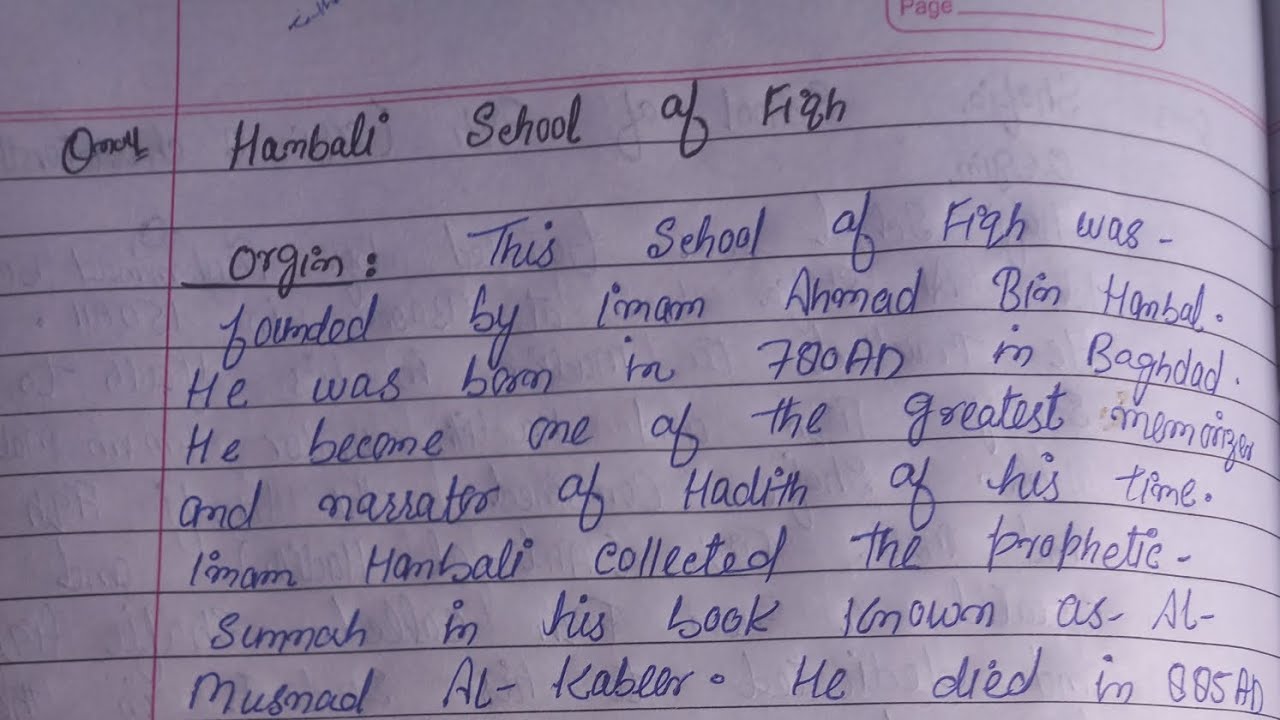 Page
Hambali School of Fiqh
Orgin: This School of Fiqh was-
founded by imam Ahmad Bin Hambal.
He was born in 780AD in Baghdad.
He become one of the greatest memorizer
and narrator of Hadith of his time.
Imam Hambali collected the prophetic-
Sunnah in his book known as- Al-
Musnad Al- Kabeer. He died in 885AD